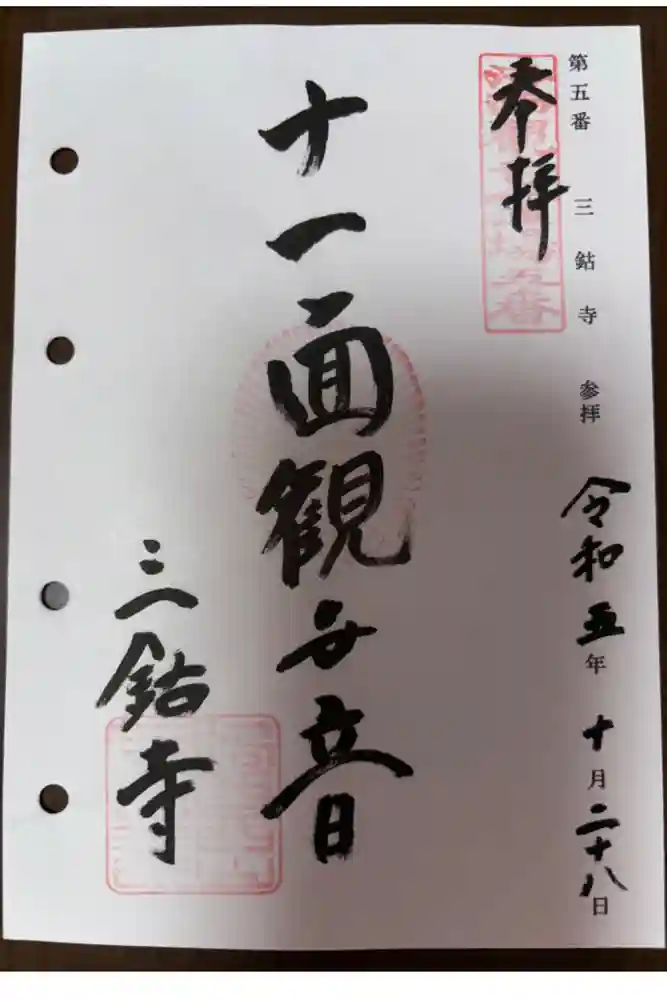 第五番 三鈷寺 参拝 令和五年十月二十八日
奉拝
十一面観世音
三鈷寺